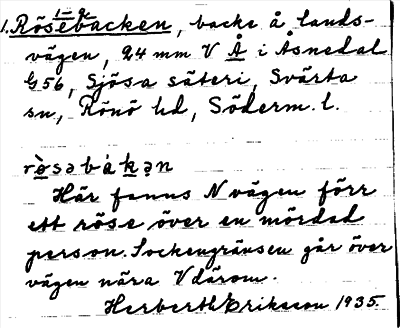 1. Rösebacken, backe å lands-
vägen, 24 mm V Å i Åsnedal
G56, Sjösa säteri, Svärta
sn, Rönö hd, Söderm. l.
rö̀səbákạn
Här fanns N vägen förr
ett röse över en mördad
person. Sockengränsen går över
vägen nära V därom.
Herberth Eriksson 1935